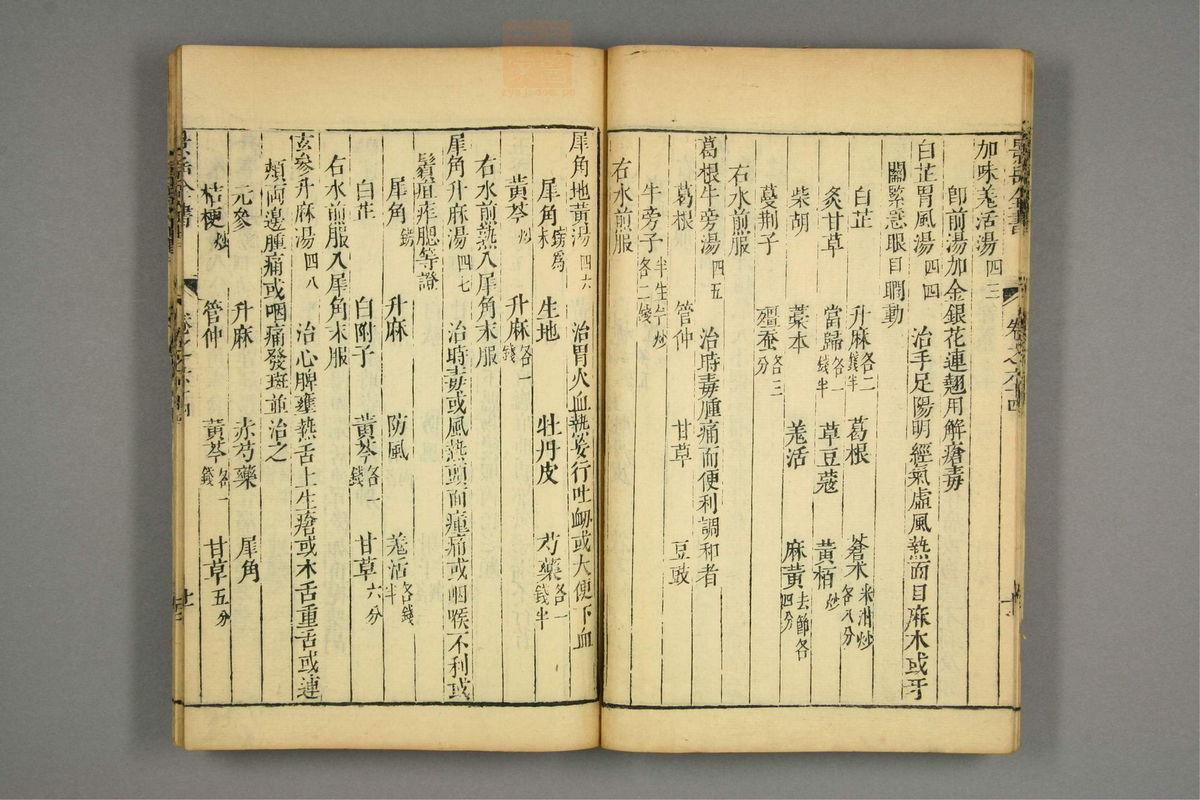 加味羗活湯四三
即前湯加金銀花連翹用解瘡毒
白芷胃風湯四四 治手足陽明經氣虛風熱面目麻木或牙
關緊急眼目瞤動
白芷 升麻各二錢半 葛根 蒼朮米泔炒各八分
炙甘草 當歸各一錢半 草豆蔻 黃栢炒
柴胡 藁本 羗活 麻黃去節各四分
蔓荆子 殭蚕各三分
右水煎服
葛根牛旁湯四五 治時毒腫痛而便利調和者
葛根 管仲 甘草 豆豉
牛旁子半生半炒各二錢
右水煎服
犀角地黃湯四六 治胃火血熱妄行吐衂或大便下血
犀角鎊爲末 生地 牡丹皮 芍藥各一錢半
黃芩炒 升麻各一錢
右水煎熱入犀角末服
犀角升麻湯四七 治時毒或風熱頭面腫痛或咽喉不利或
鬢疽痄腮等證
犀角鎊 升麻 防風 羗活各錢半
白芷 白附子 黃芩各一錢 甘草六分
右水煎服入犀角末服
玄參升麻湯四八 治心脾壅熱舌上生瘡或木舌重舌或連
頰兩邊腫痛或咽痛發斑並治之
元參 升麻 赤芍藥 犀角
桔梗炒 管仲 黃芩各一錢 甘草五分